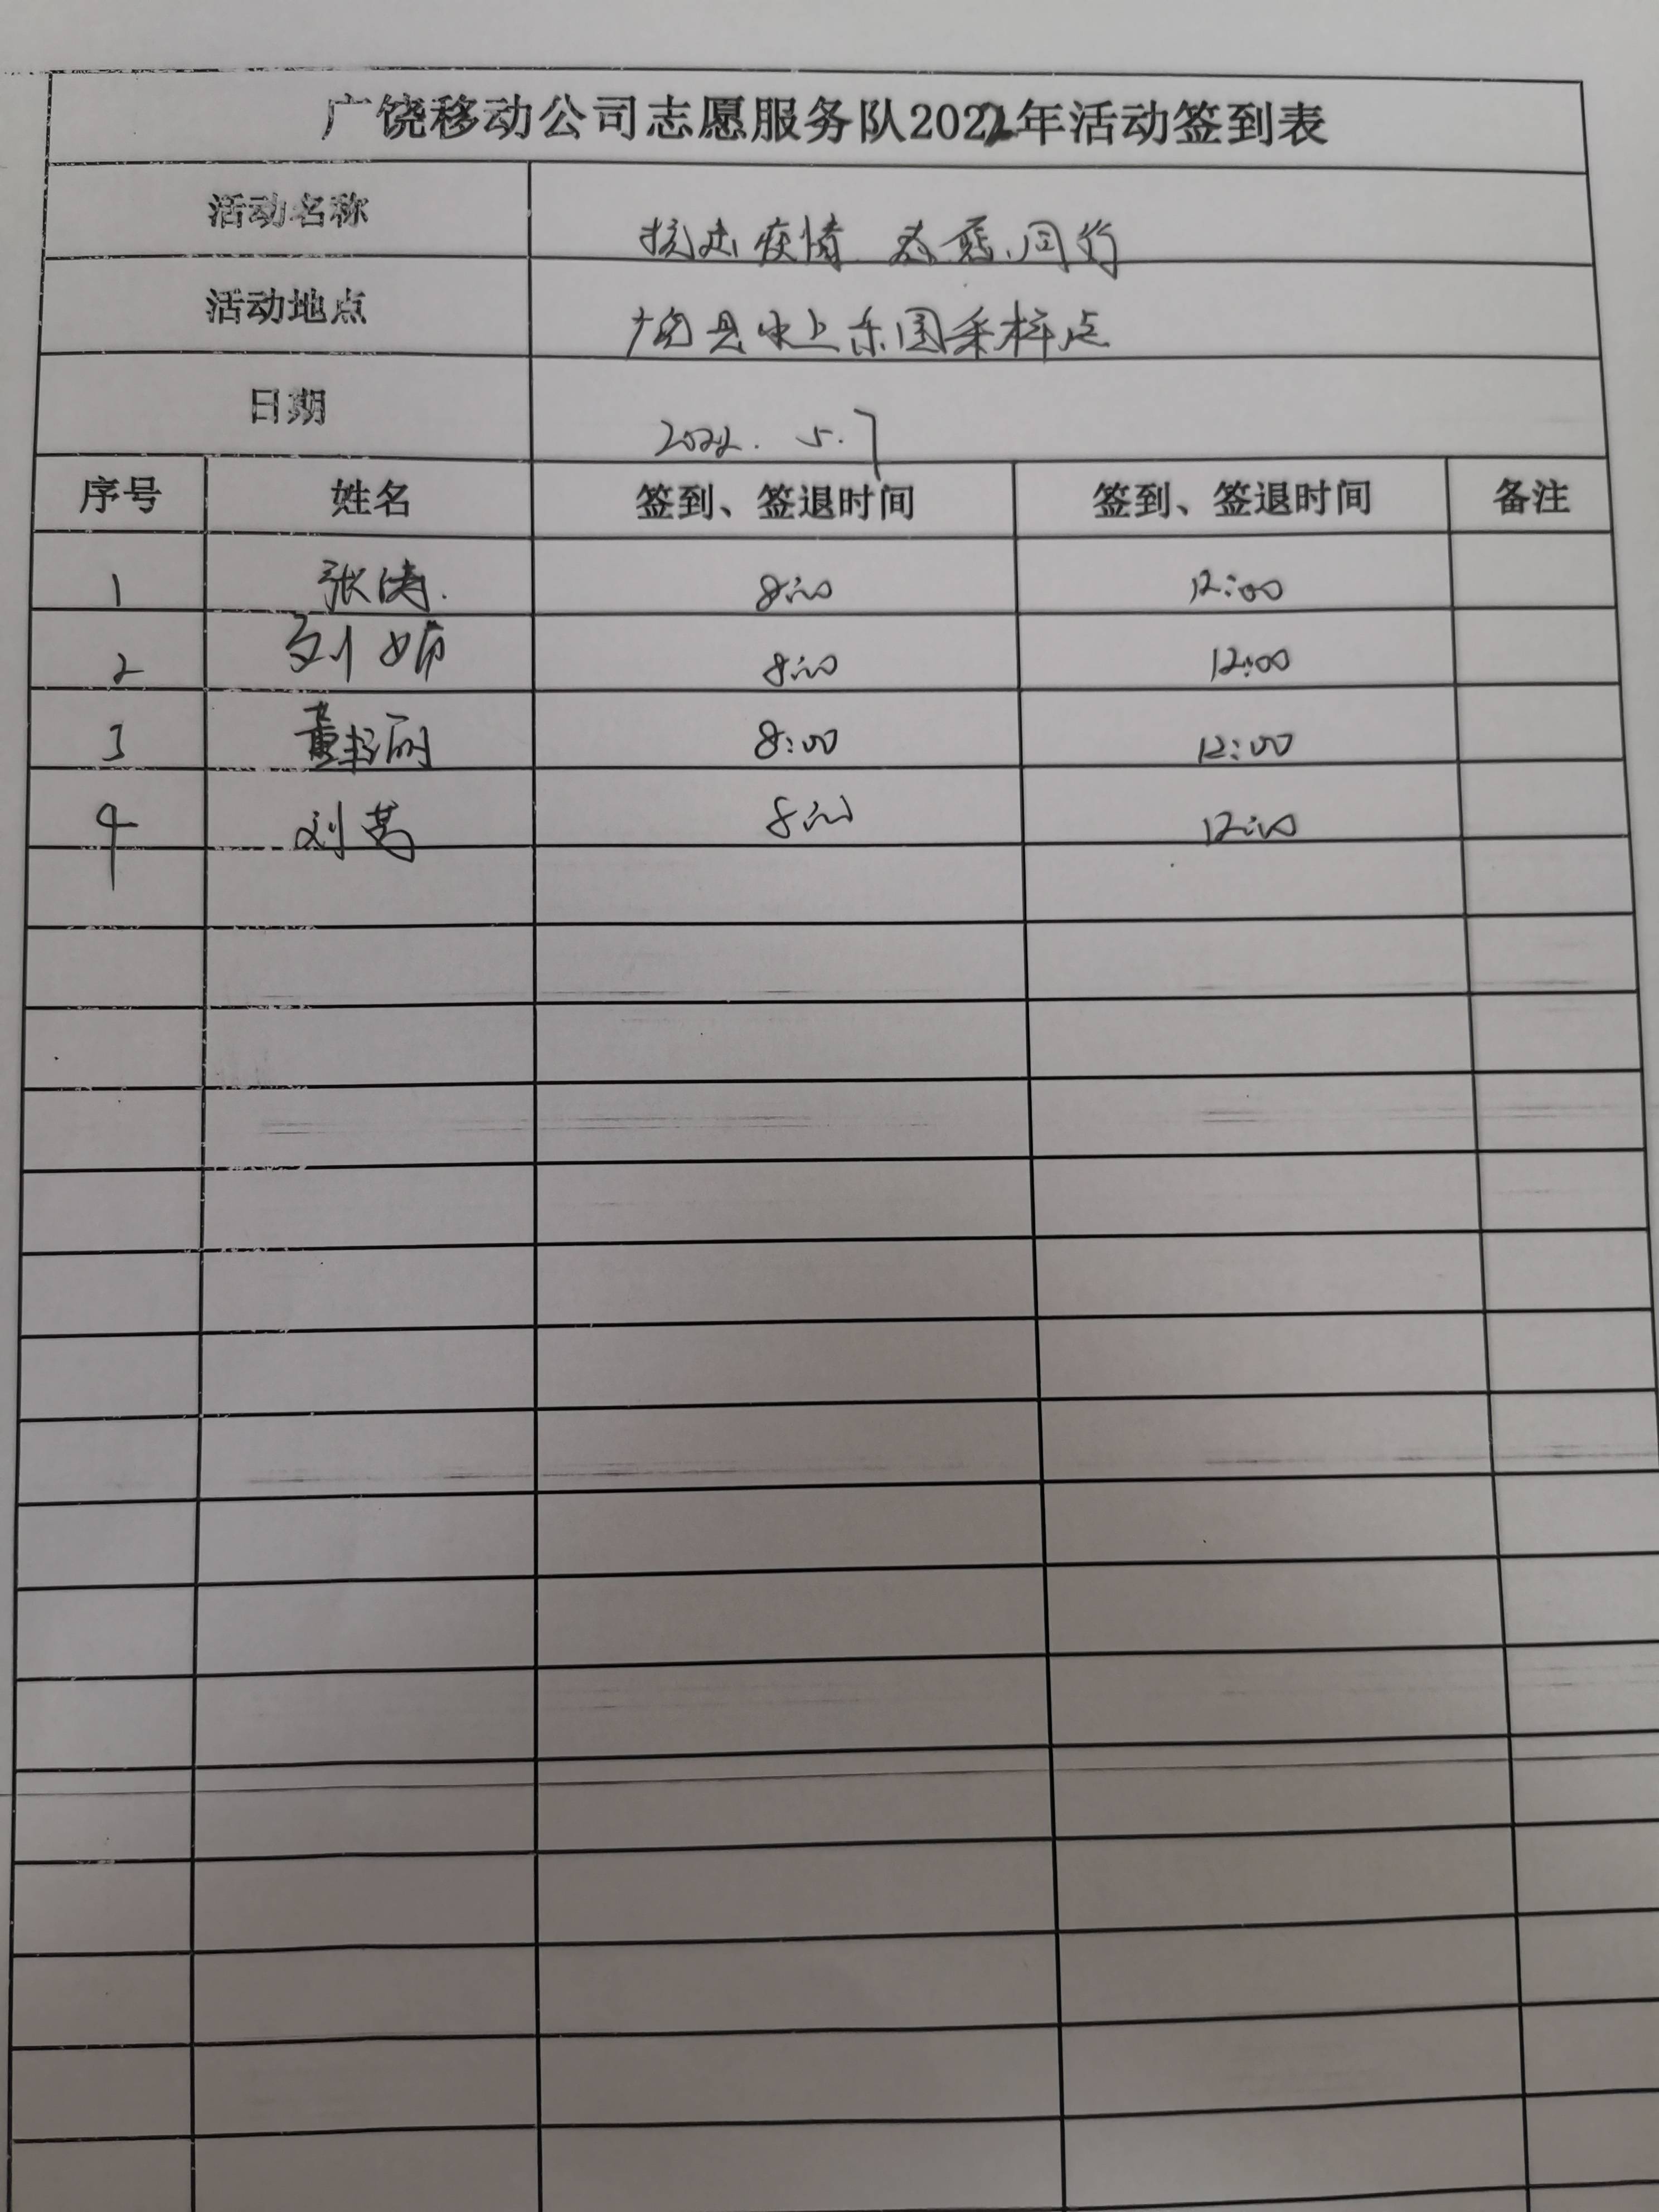 广饶移动公司志愿服务队2022年活动签到表
活动名称 抗击疫情 志愿同行
活动地点 广饶县水上乐园采样点
日期 2022.5.7
序号 姓名 签到、签退时间 签到、签退时间 备注
1 张涛 8:00 12:00
2 刘娜 8:00 12:00
3 董 丽 8:00 12:00
4 刘 8:00 12:00